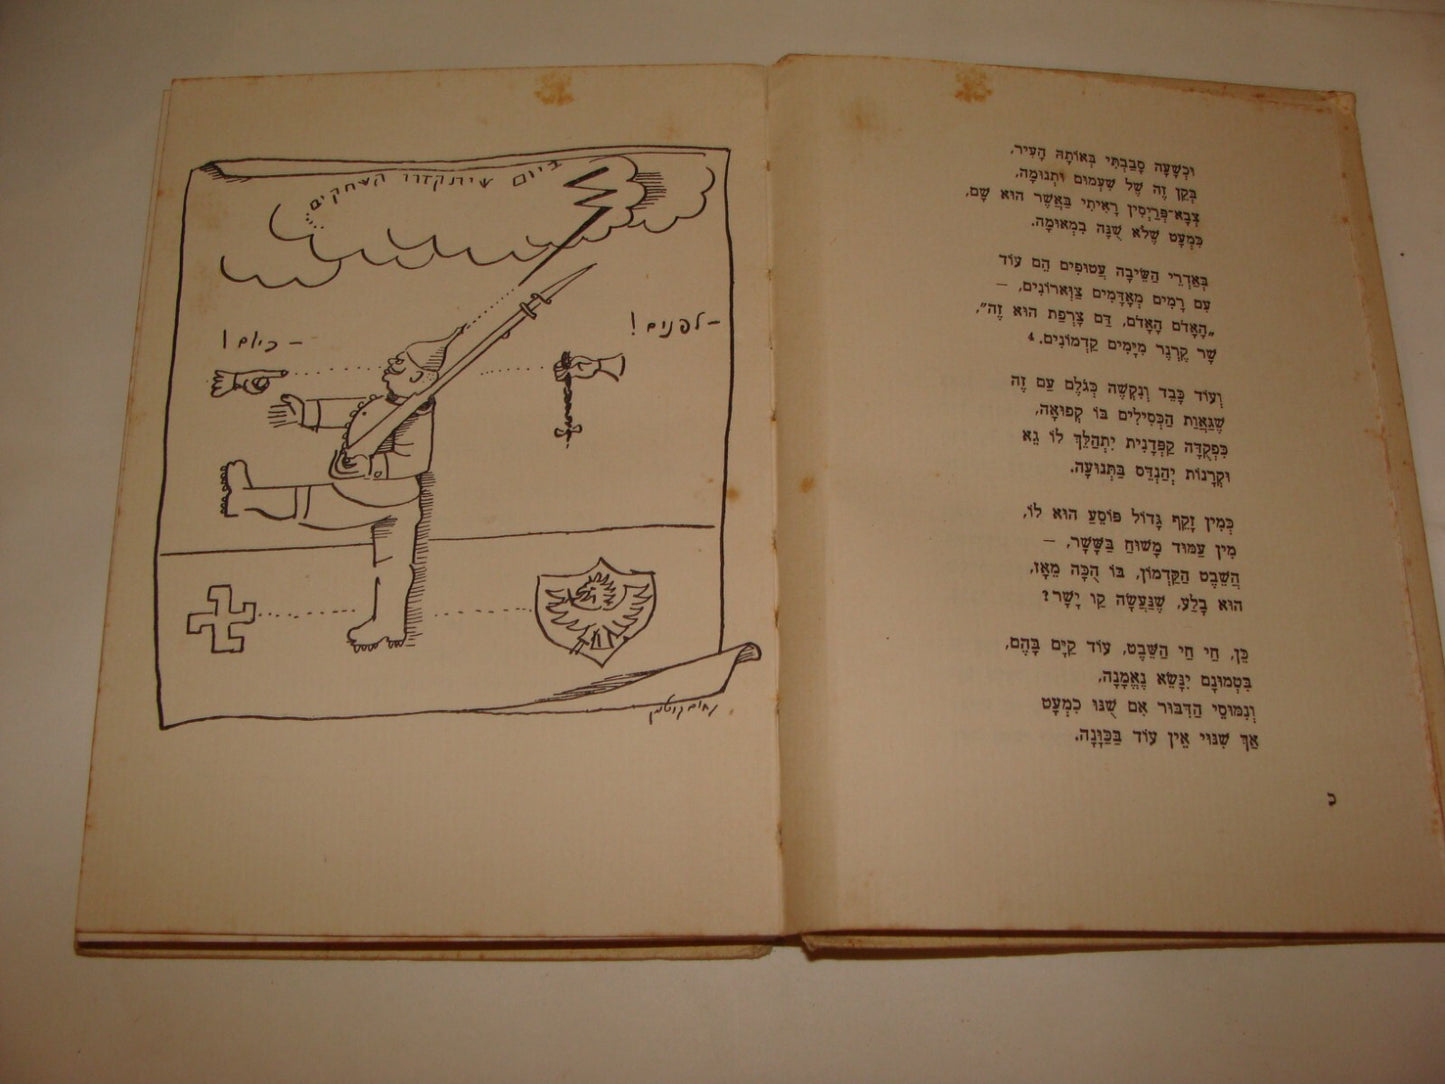 וּכְשָׁעָה סָבַבְתִּי בְּאוֹתָהּ הָעִיר,
בְּקֵן זֶה שֶׁל שִׁעֲמוּם וּתְנוּמָה,
צְבָא־פְּרַיְסִין רָאִיתִי בַּאֲשֶׁר הוּא שָׁם,
כִּמְעַט שֶׁלֹּא שֻׁנָּה בִמְאוּמָה.
בְּאַדְרֵי הַשֵּׂיבָה עֲטוּפִים הֵם עוֹד
עִם רָמִים מְאָדָּמִים צַוָּארוֹנִים, —
„הָאָדֹם הָאָדֹם, דַּם צָרְפַת הוּא זֶה",
שָׁר קֶרְנֶר מִיָּמִים קַדְמוֹנִים.4
וְעוֹד כָּבֵד וְנִקְשֶׁה כְּגֹלֶם עַם זֶה
שֶׁגַּאֲוַת הַכְּסִילִים בּוֹ קְפוּאָה,
כִּפְקֻדָּה קַפְּדָנִית יִתְהַלֵּךְ לוֹ גֵא
וּקְרָנוֹת יְהַנְדֵּס בַּתְּנוּעָה.
כְּמִין זָקֵף גָּדוֹל פּוֹסֵעַ הוּא לוֹ,
מִין עַמּוּד מָשׁוּחַ בַּשָּׁשָׁר, —
הֲשֵׁבֶט הַקַּדְמוֹן, בּוֹ הֻכָּה מֵאָז,
הוּא בָלַע, שֶׁנַּעֲשָׂה קַו יָשָׁר?
כֵּן, חַי חַי הַשֵּׁבֶט, עוֹד קַיָּם בָּהֶם,
בִּטְמוּנָם יִנָּשֵׂא נֶאֱמָנָה,
וְנִמּוּסֵי הַדִּבּוּר אִם שֻׁנּוּ כִמְעָט
אַךְ שִׁנּוּי אֵין עוֹד בַּכַּוָּנָה.
כ
ביום שיתקדרו השחקים...
– לפנים!
– כיום!
נחום גוטמן